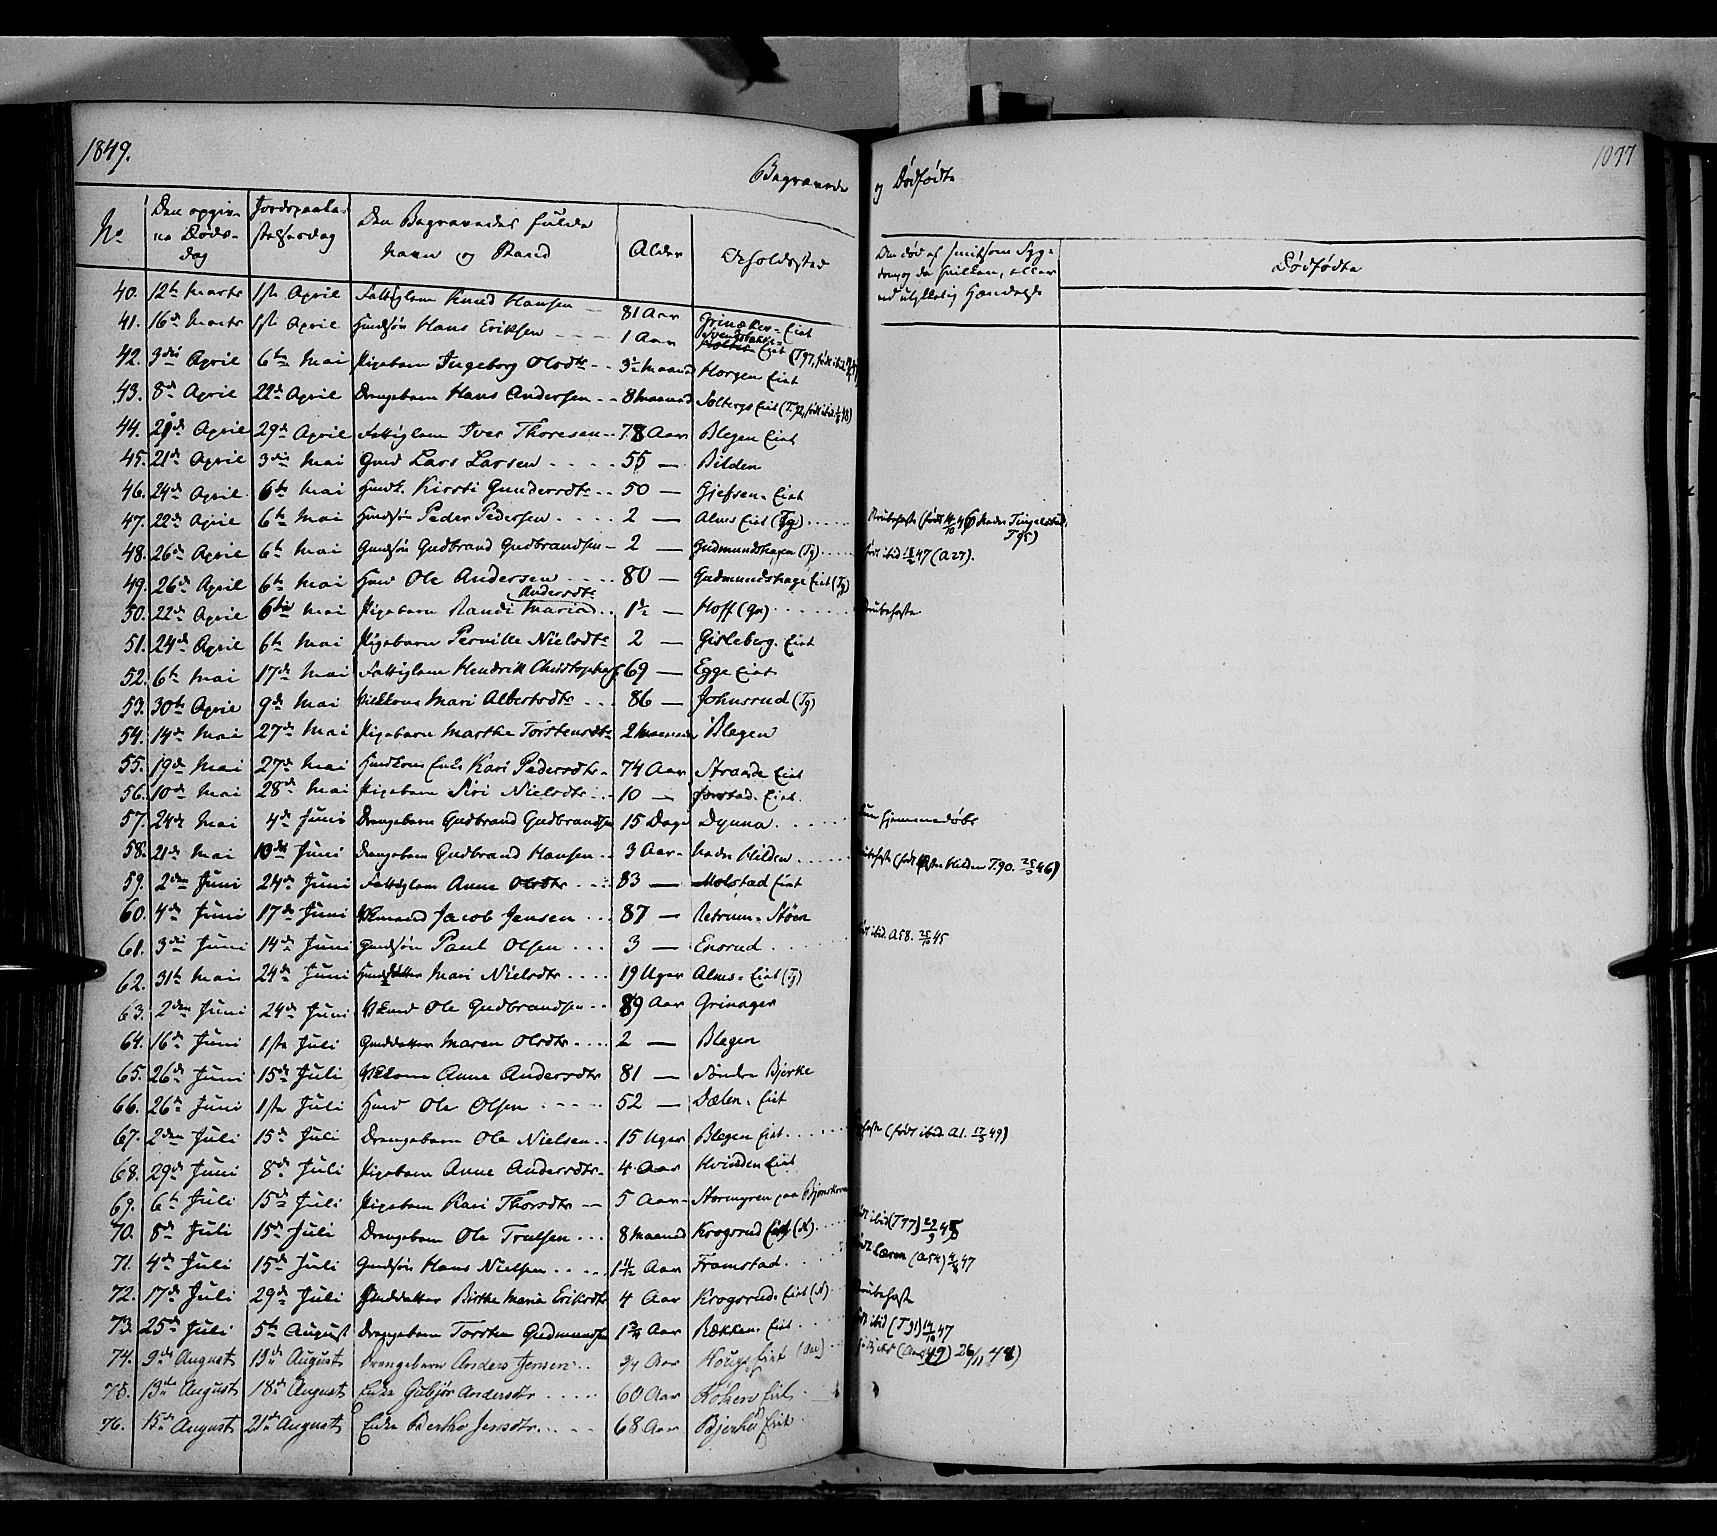 1849.
1077
Begravede og Dødfødte
No Den opgivne Dødsdag Jordspaakastelsesdag Den Begravedes fulde Navn og Stand Alder Opholdssted Om død af smitsom Sygdom og da hvilken, eller ved ulykkelig Hændelse Dødfødte
40. 12te Marts 1ste April Fattiglem Knud Hansen 81 Aar Grinaker-Eiet
41. 16de Marts 1ste April Huusmds Søn Hans Eriksen 1 Aar Eiet
42. 3die April 6te Mai Pigebarn Ingeborg Olsdtr 3 Maaned Horgen Eiet
43. 8de April 22de April Drengebarn Hans Andersen 8 Maaned Solbergs Eiet
44. 20de April 29de April Fattiglem Iver Thoresen 78 Aar Blegen Eiet
45. 21de April 3die Mai Gmd Lars Larsen 55 — Bilden
46. 24de April 6te Mai Huusk. Kirsti Gundersdtr 50 — Gjefsen-Eiet
47. 22de April 6te Mai Huusmds Søn Peder Pedersen 2 — Alms Eiet (Tg) Strubehoste (født Nedre Tingelstad T95)
48. 26de April 6te Mai Gmdssøn Gudbrand Gudbrandsen 2 — Gudmundshagen (Tg) født ibid 47 (A27).
49. 26de April 6te Mai Huusmd Ole Andersen 80 — Gudmundshage Eiet (Tg)
50. 22de April 6te Mai Pigebarn Randi Maria Andersdtr 1½ — Hoff (Gr) Strubehoste
51. 24de April 6te Mai Pigebarn Pernille Nielsdtr 2 — Gisleberg-Eiet
52. 6te Mai 17de Mai Fattiglem Hendrik Christophers. 69 — Egge Eiet
53. 30te April 9de Mai Mari Albertsdtr 86 — Johnsrud (Tg)
54. 14de Mai 27de Mai Pigebarn Marthe Torstensdtr 2 Maaneder Blegen
55. 19de Mai 27de Mai Enke Kari Pedersdtr 74 Aar Straade Eiet
56. 10de Mai 28de Mai Pigebarn Siri Nielsdtr 10 — Eiet
57. 24de Mai 4de Juni Drengebarn Gudbrand Gudbrandsen 15 Dage Dynna Kun hjemmedøbt
58. 21de Mai 10de Juni Drengebarn Gudbrand Hansen 3 Aar Nedre Hilden Strubehoste (født Østre Hilden T90. 46)
59. 2den Juni 24de Juni Fattiglem Anne Olsdtr 83 — Molstad Eiet
60. 4de Juni 17de Juni Jacob Jensen 87 — Retrum-Støen
61. 3die Juni 14de Juni Gmdssøn Paul Olsen 3 — Ensrud født ibid. A58. 45
62. 31te Mai 24de Juni Mari Nielsdtr 19 Uger Alms-Eiet (Tg)
63. 2den Juni 24de Juni Ole Gudbrandsen 89 Aar Grinager
64. 16de Juni 1ste Juli Gmddatter Maren Olsdtr 2 — Blegen
65. 26de Juni 15de Juli Anne Andersdtr 81 — Søndre Bjerke
66. 26de Juni 1ste Juli Huusmd Ole Olsen 52 — Dælen-Eiet
67. 2den Juli 15de Juli Drengebarn Ole Nielsen 15 Uger Blegen Eiet (født ibid. A1. 49)
68. 29de Juni 8de Juli Pigebarn Anne Andersdtr 4 Aar Hvinden Eiet
69. 6te Juli 15de Juli Pigebarn Kari Thorsdtr 5 Aar Stormyren paa
70. 8de Juli 15de Juli Drengebarn Ole Truelsen 8 Maaned Krogsrud Eiet (N) født ibid (T97) 48
71. 4de Juli 15de Juli Gmdssøn Hans Nielsen 1½ Aar Framstad født Læren (A54) 47
72. 17de Juli 29de Juli Huusdatter Birthe Maria Eriksdtr 4 Aar Krogsruds Eiet (N) Strubehoste
73. 25de Juli 5te August Drengebarn Torsten Gudmundsen 1¾ Aar Rækken-Eiet født ibid (T91) 47
74. 9de August 19de August Drengebarn Anders Jensen ¾ Aar Hougs Eiet 26/11 48)
75. 13de August 18de August Enke Gubjør Andersdtr 60 Aar Koken Eiet
76. 15de August 21de August Enke Berthe Jensdtr 68 Aar Bjerke Eiet